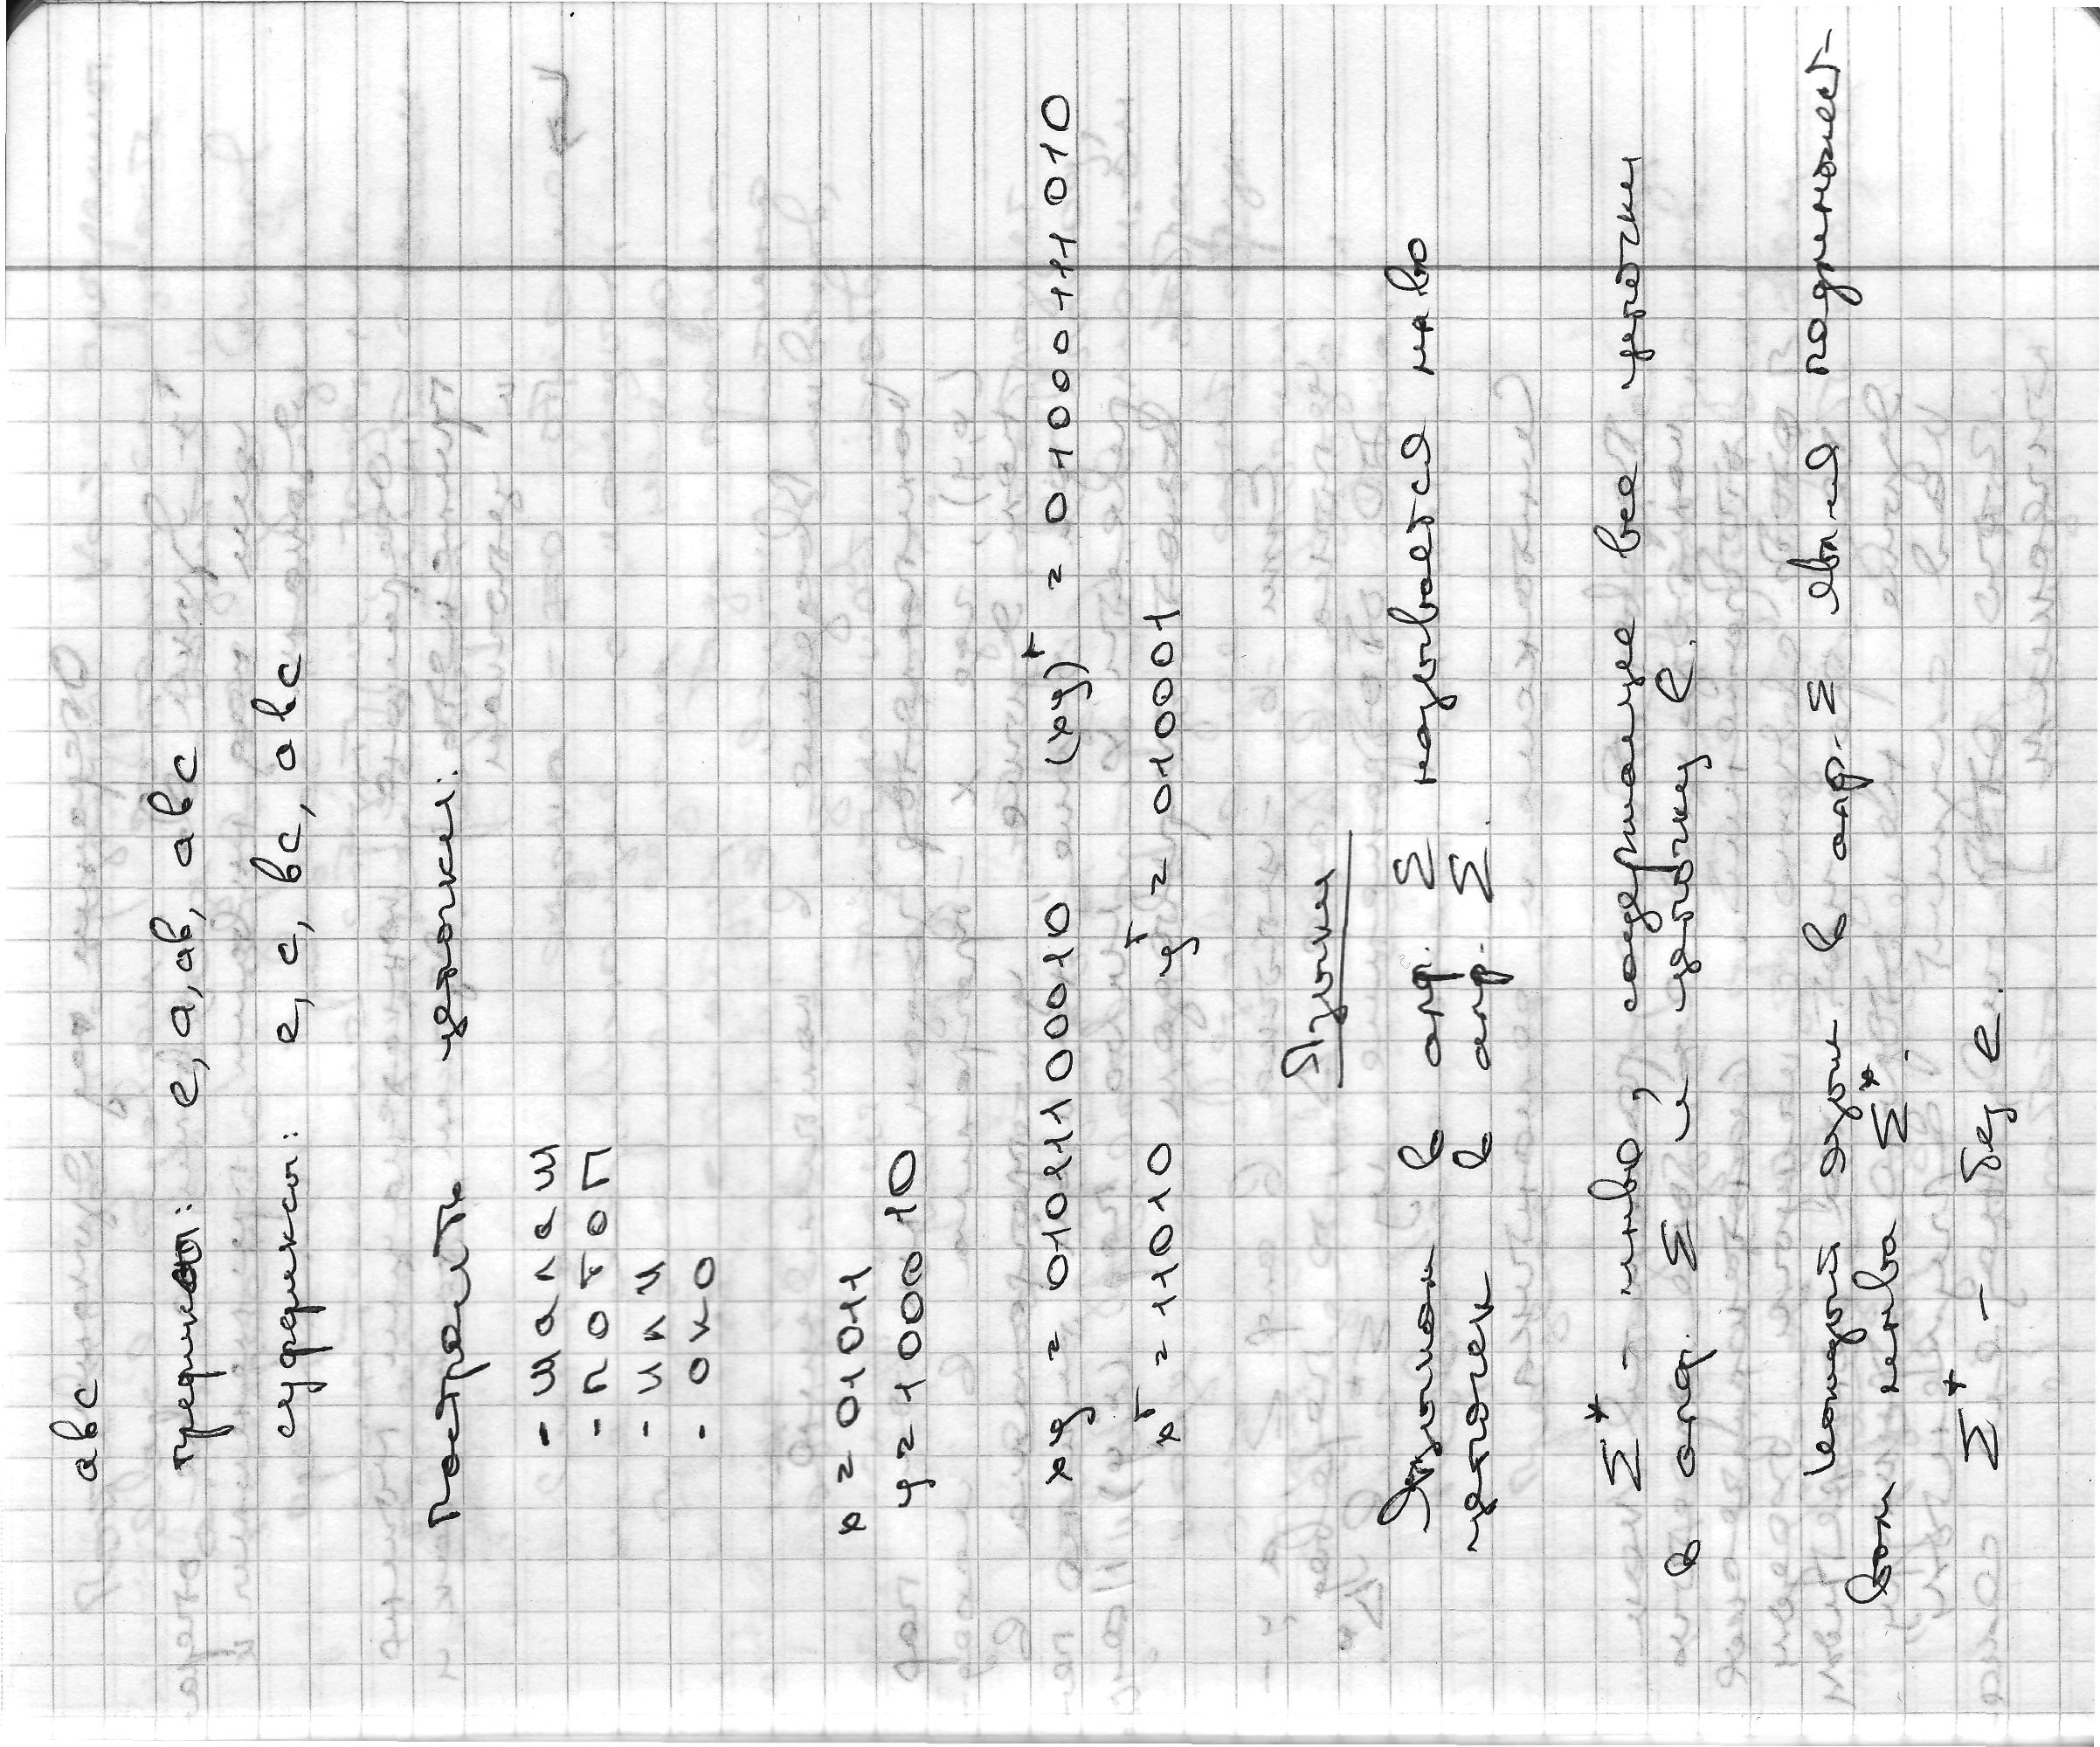 abc
префиксы: e, a, ab, abc
суффиксы: e, c, bc, abc
Построить цепочки:
- шалаш
- потоп
- или
- око
x = 01011
y = 1000 10
xy = 01011100010 (xy)ʳ = 01000111010
xʳ = 11010 yʳ = 010001
Языки
Языком в алф. Σ называется мн-во
цепочек в алф. Σ.
Σ* - мн-во, содержащее все цепочки
в алф. Σ и цепочку e.
Каждый язык в алф. Σ явл-ся подмножест-
вом мн-ва Σ*.
Σ⁺ - без e.